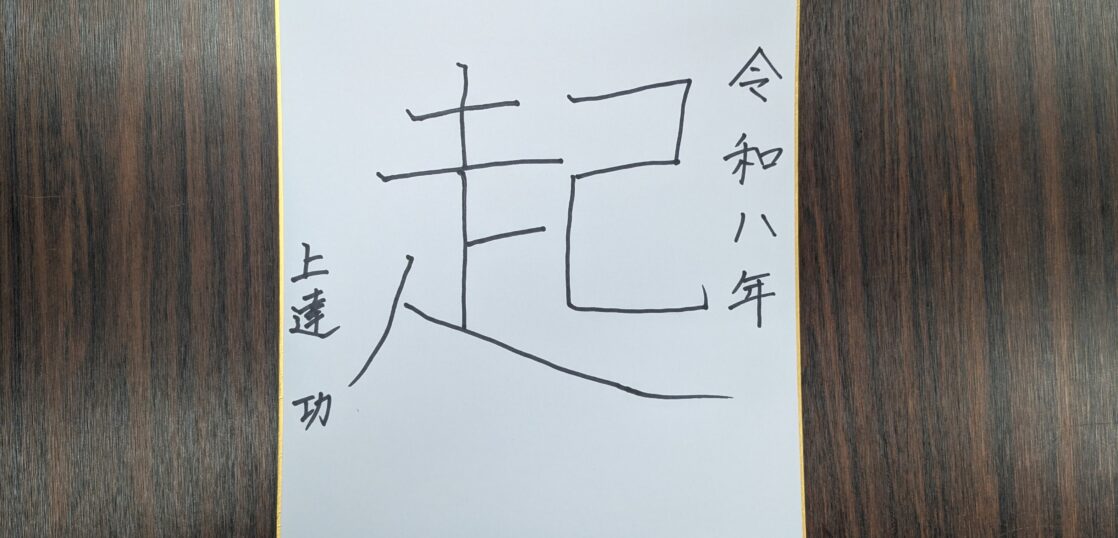 令和八年
起
上達 功